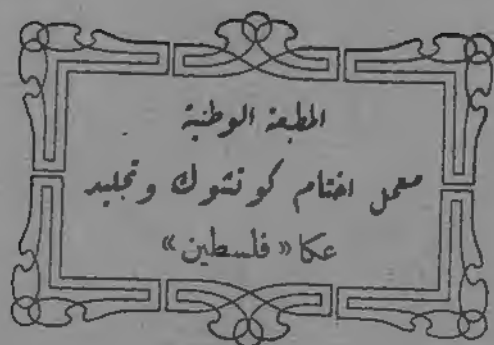 المطبعة الوطنية
معمل اختام كوتشوك وتجليد
عكا «فلسطين»